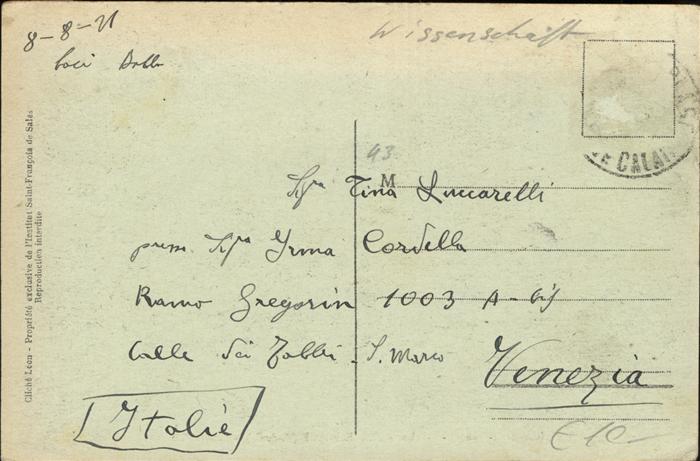 8-8-21
Baci Bolle
Wissenschaft
CALAI
43
M
Sig.ra Tina Luccarelli
presso Sig.ra Irma Cordella
Ramo Gregorin 1003 A-bis
Calle dei Fabbri. S. Marco
Venezia
Italie
€10-
Cliché Leon - Propriété exclusive de l'Institut Saint-François de Sales
Reproduction interdite